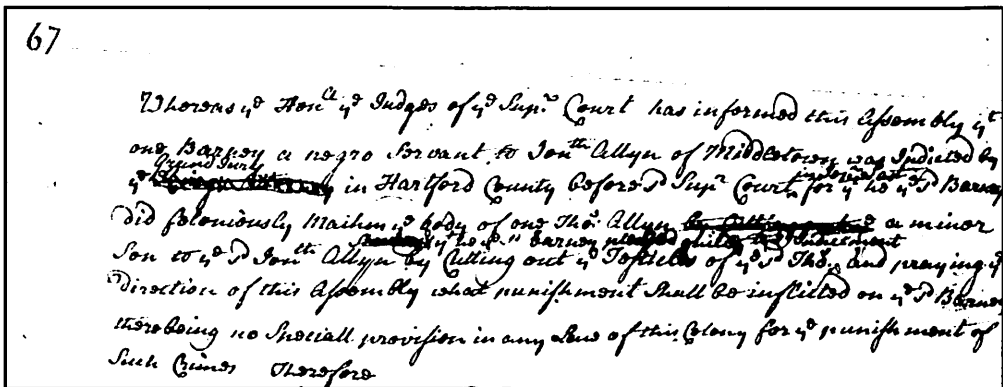 67
Whereas ye Honble ye Judges of ye Supr Court has informed this Assembly yt
one Barney a negro Servant to Jonth Allyn of Middletown was Indicted by
Grand Jury
ye in Hartford County before sd Supr Court for yt he ye sd Barney
did feloniously Maihm ye body of one Thos Allyn a minor
yt he ye sd Barney pleaded guilty to sd Indictment
Son to ye sd Jonth Allyn by Cutting out ye Testicles of ye sd Thos, and praying ye
direction of this Assembly what punishment shall be inflicted on ye sd Barney
there being no Speciall provision in any Law of this Colony for ye punishment of
Such Crimes Therefore